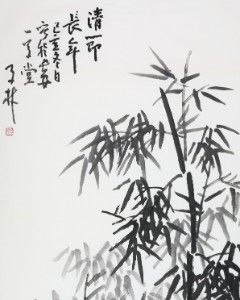 清節
長年
己亥冬日
寫於長安
一了堂
子林